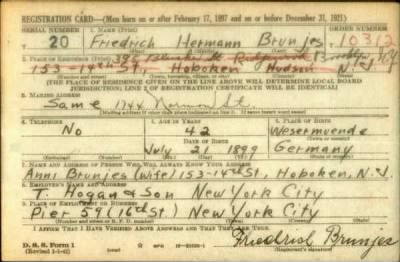 REGISTRATION CARD—(Men born on or after February 17, 1897 and on or before December 31, 1921)
SERIAL NUMBER 1. NAME (Print) ORDER NUMBER
20 Friedrich Hermann Brunjes 10312
2. PLACE OF RESIDENCE (Print)
153-14th St. Hoboken Hudson N.J.
(THE PLACE OF RESIDENCE GIVEN ON THE LINE ABOVE WILL DETERMINE LOCAL BOARD
JURISDICTION; LINE 2 OF REGISTRATION CERTIFICATE WILL BE IDENTICAL)
3. MAILING ADDRESS
Same 1744 Norman St.
4. TELEPHONE 5. AGE IN YEARS 6. PLACE OF BIRTH
No 42 Wesermuende
DATE OF BIRTH
July 21 1899 Germany
7. NAME AND ADDRESS OF PERSON WHO WILL ALWAYS KNOW YOUR ADDRESS
Anni Brunjes (wife) 153-14th St., Hoboken, N.J.
8. EMPLOYER'S NAME AND ADDRESS
T. Hogan & Son New York City
9. PLACE OF EMPLOYMENT OR BUSINESS
Pier 59 (16th St.) New York City
I AFFIRM THAT I HAVE VERIFIED ABOVE ANSWERS AND THAT THEY ARE TRUE.
D. S. S. Form 1
Friedrich Brunjes